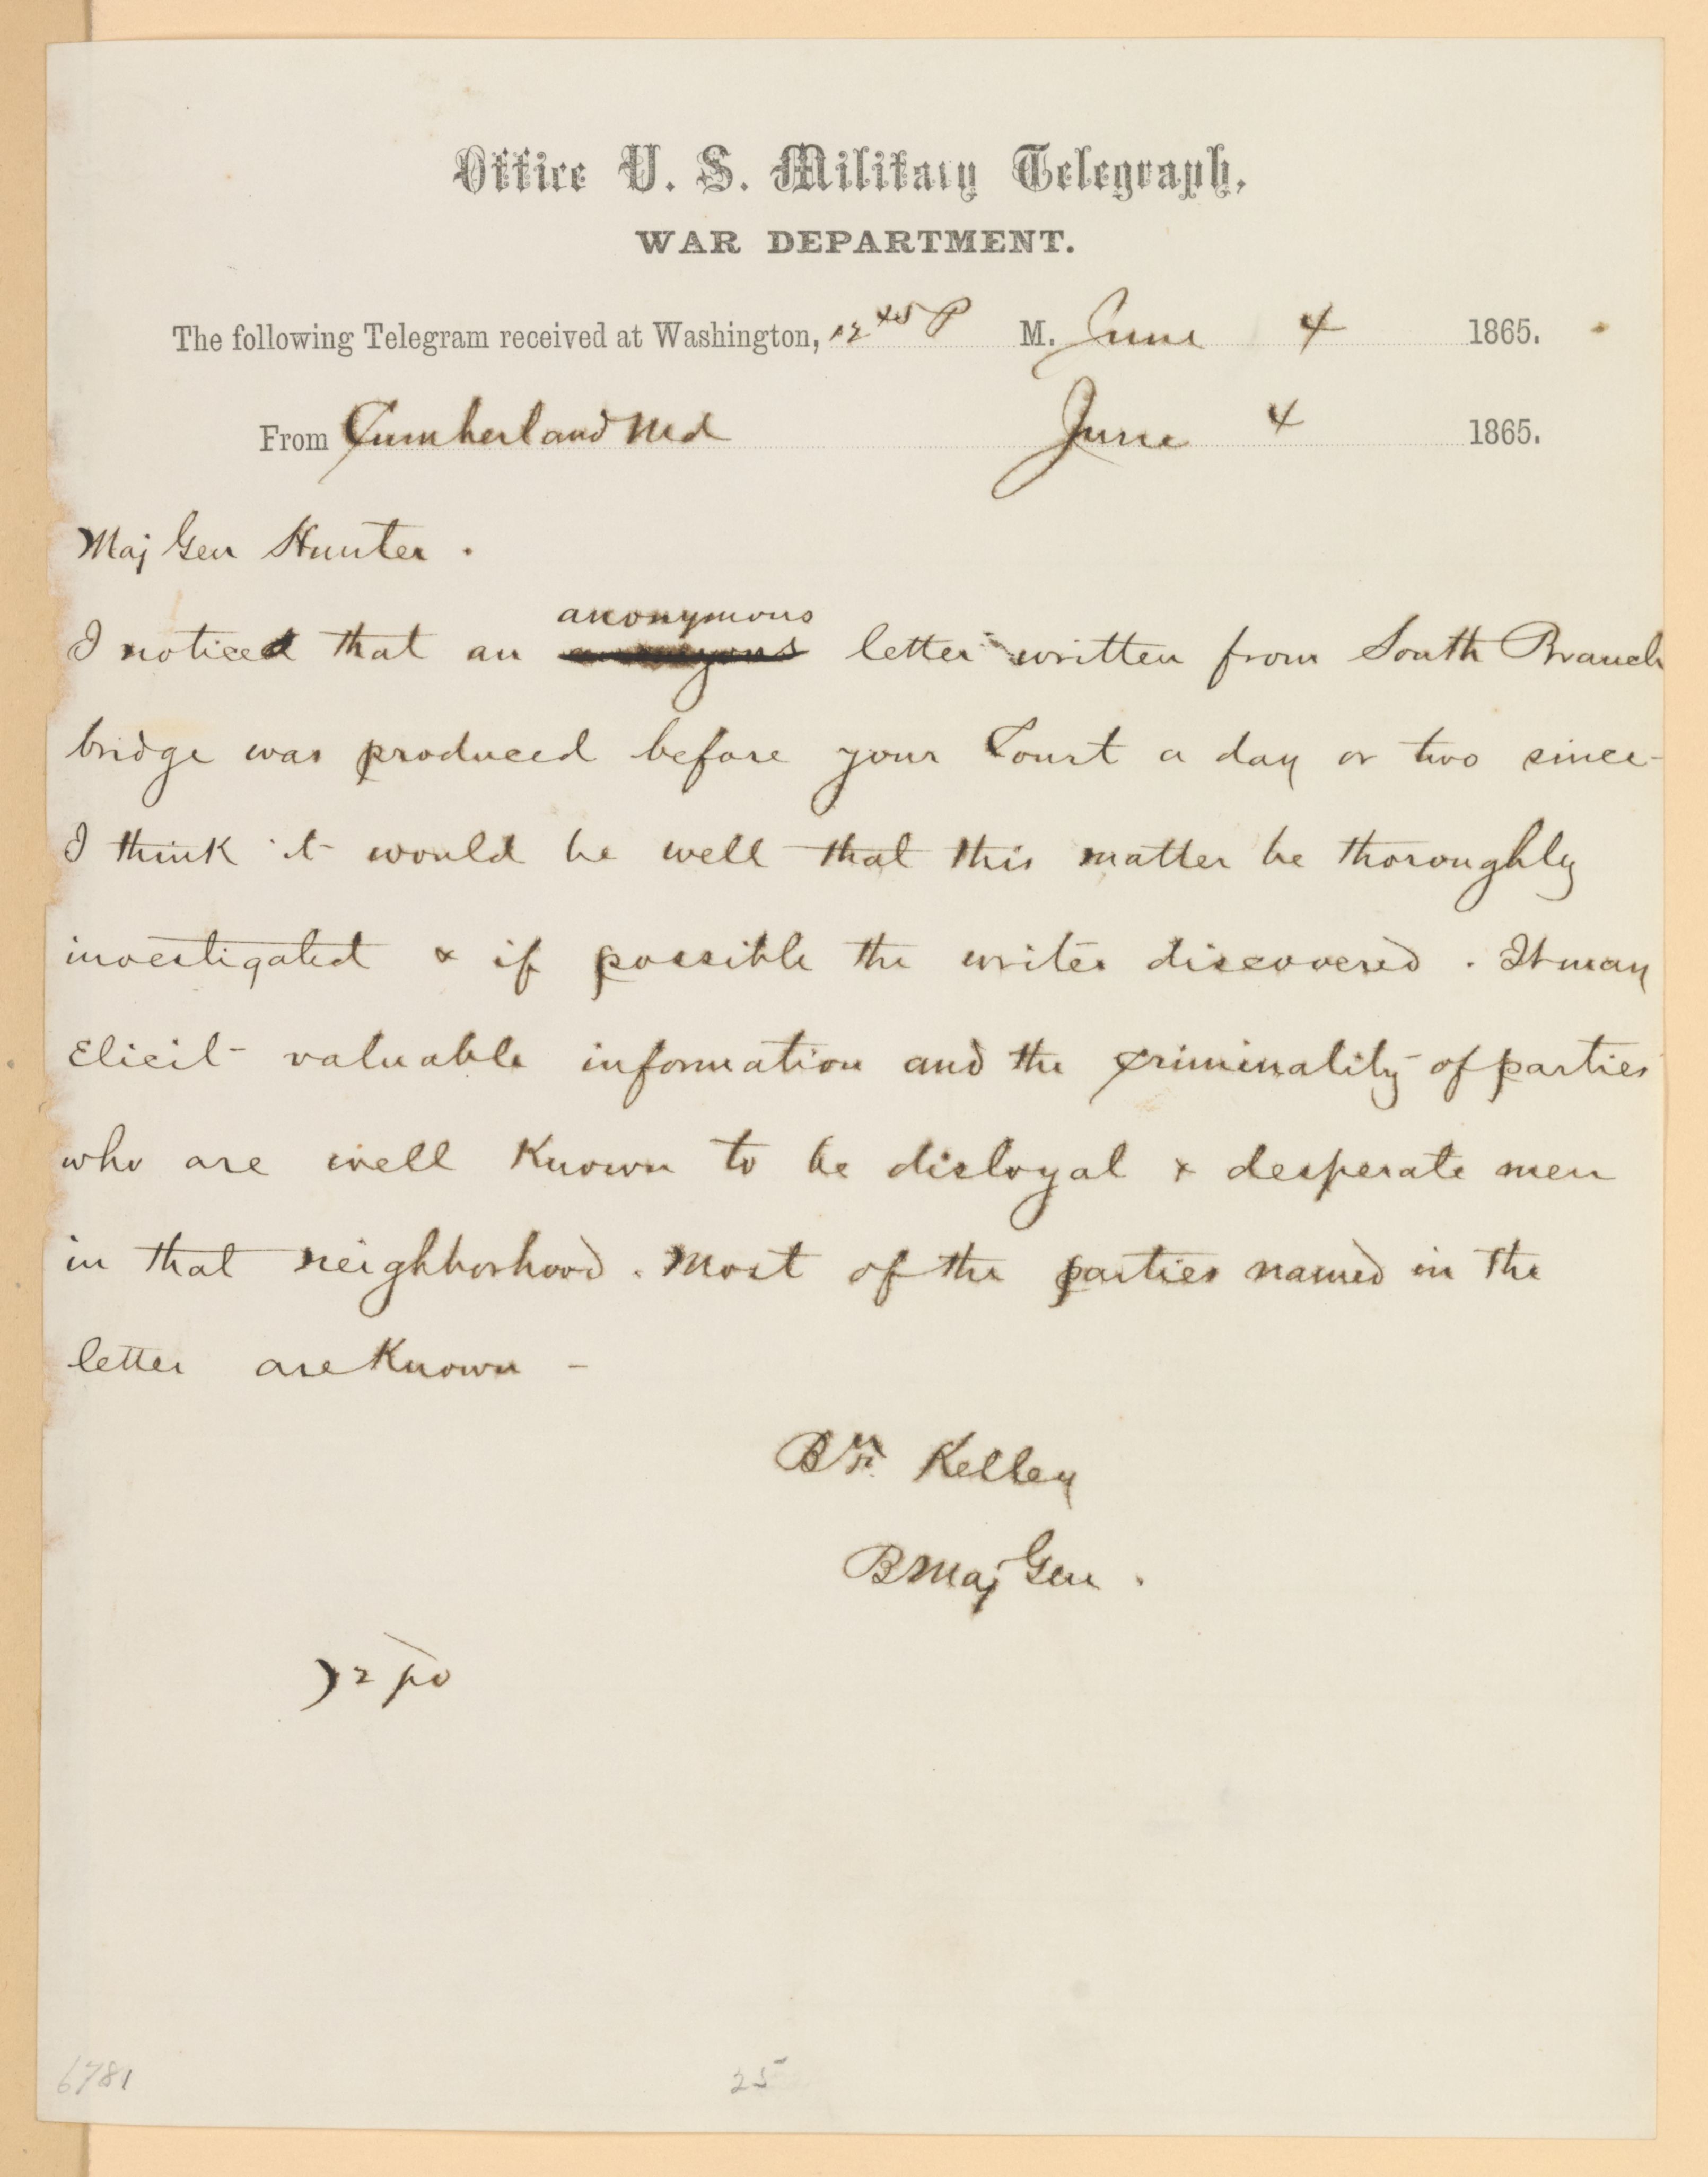 Office U. S. Military Telegraph,
WAR DEPARTMENT.
The following Telegram received at Washington, 12 45 P M. June 4 1865.
From Cumberland Md June 4 1865.
Maj Gen Hunter.
anonymous
I noticed that an letter written from South Branch
bridge was produced before your Court a day or two since-
I think it would be well that this matter be thoroughly
investigated & if possible the writer discovered. It may
Elicit valuable information and the criminality of parties
who are well Known to be disloyal & desperate men
in that neighborhood. Most of the parties named in the
letter are Known -
Kelley
B Maj Gen.
6781
25